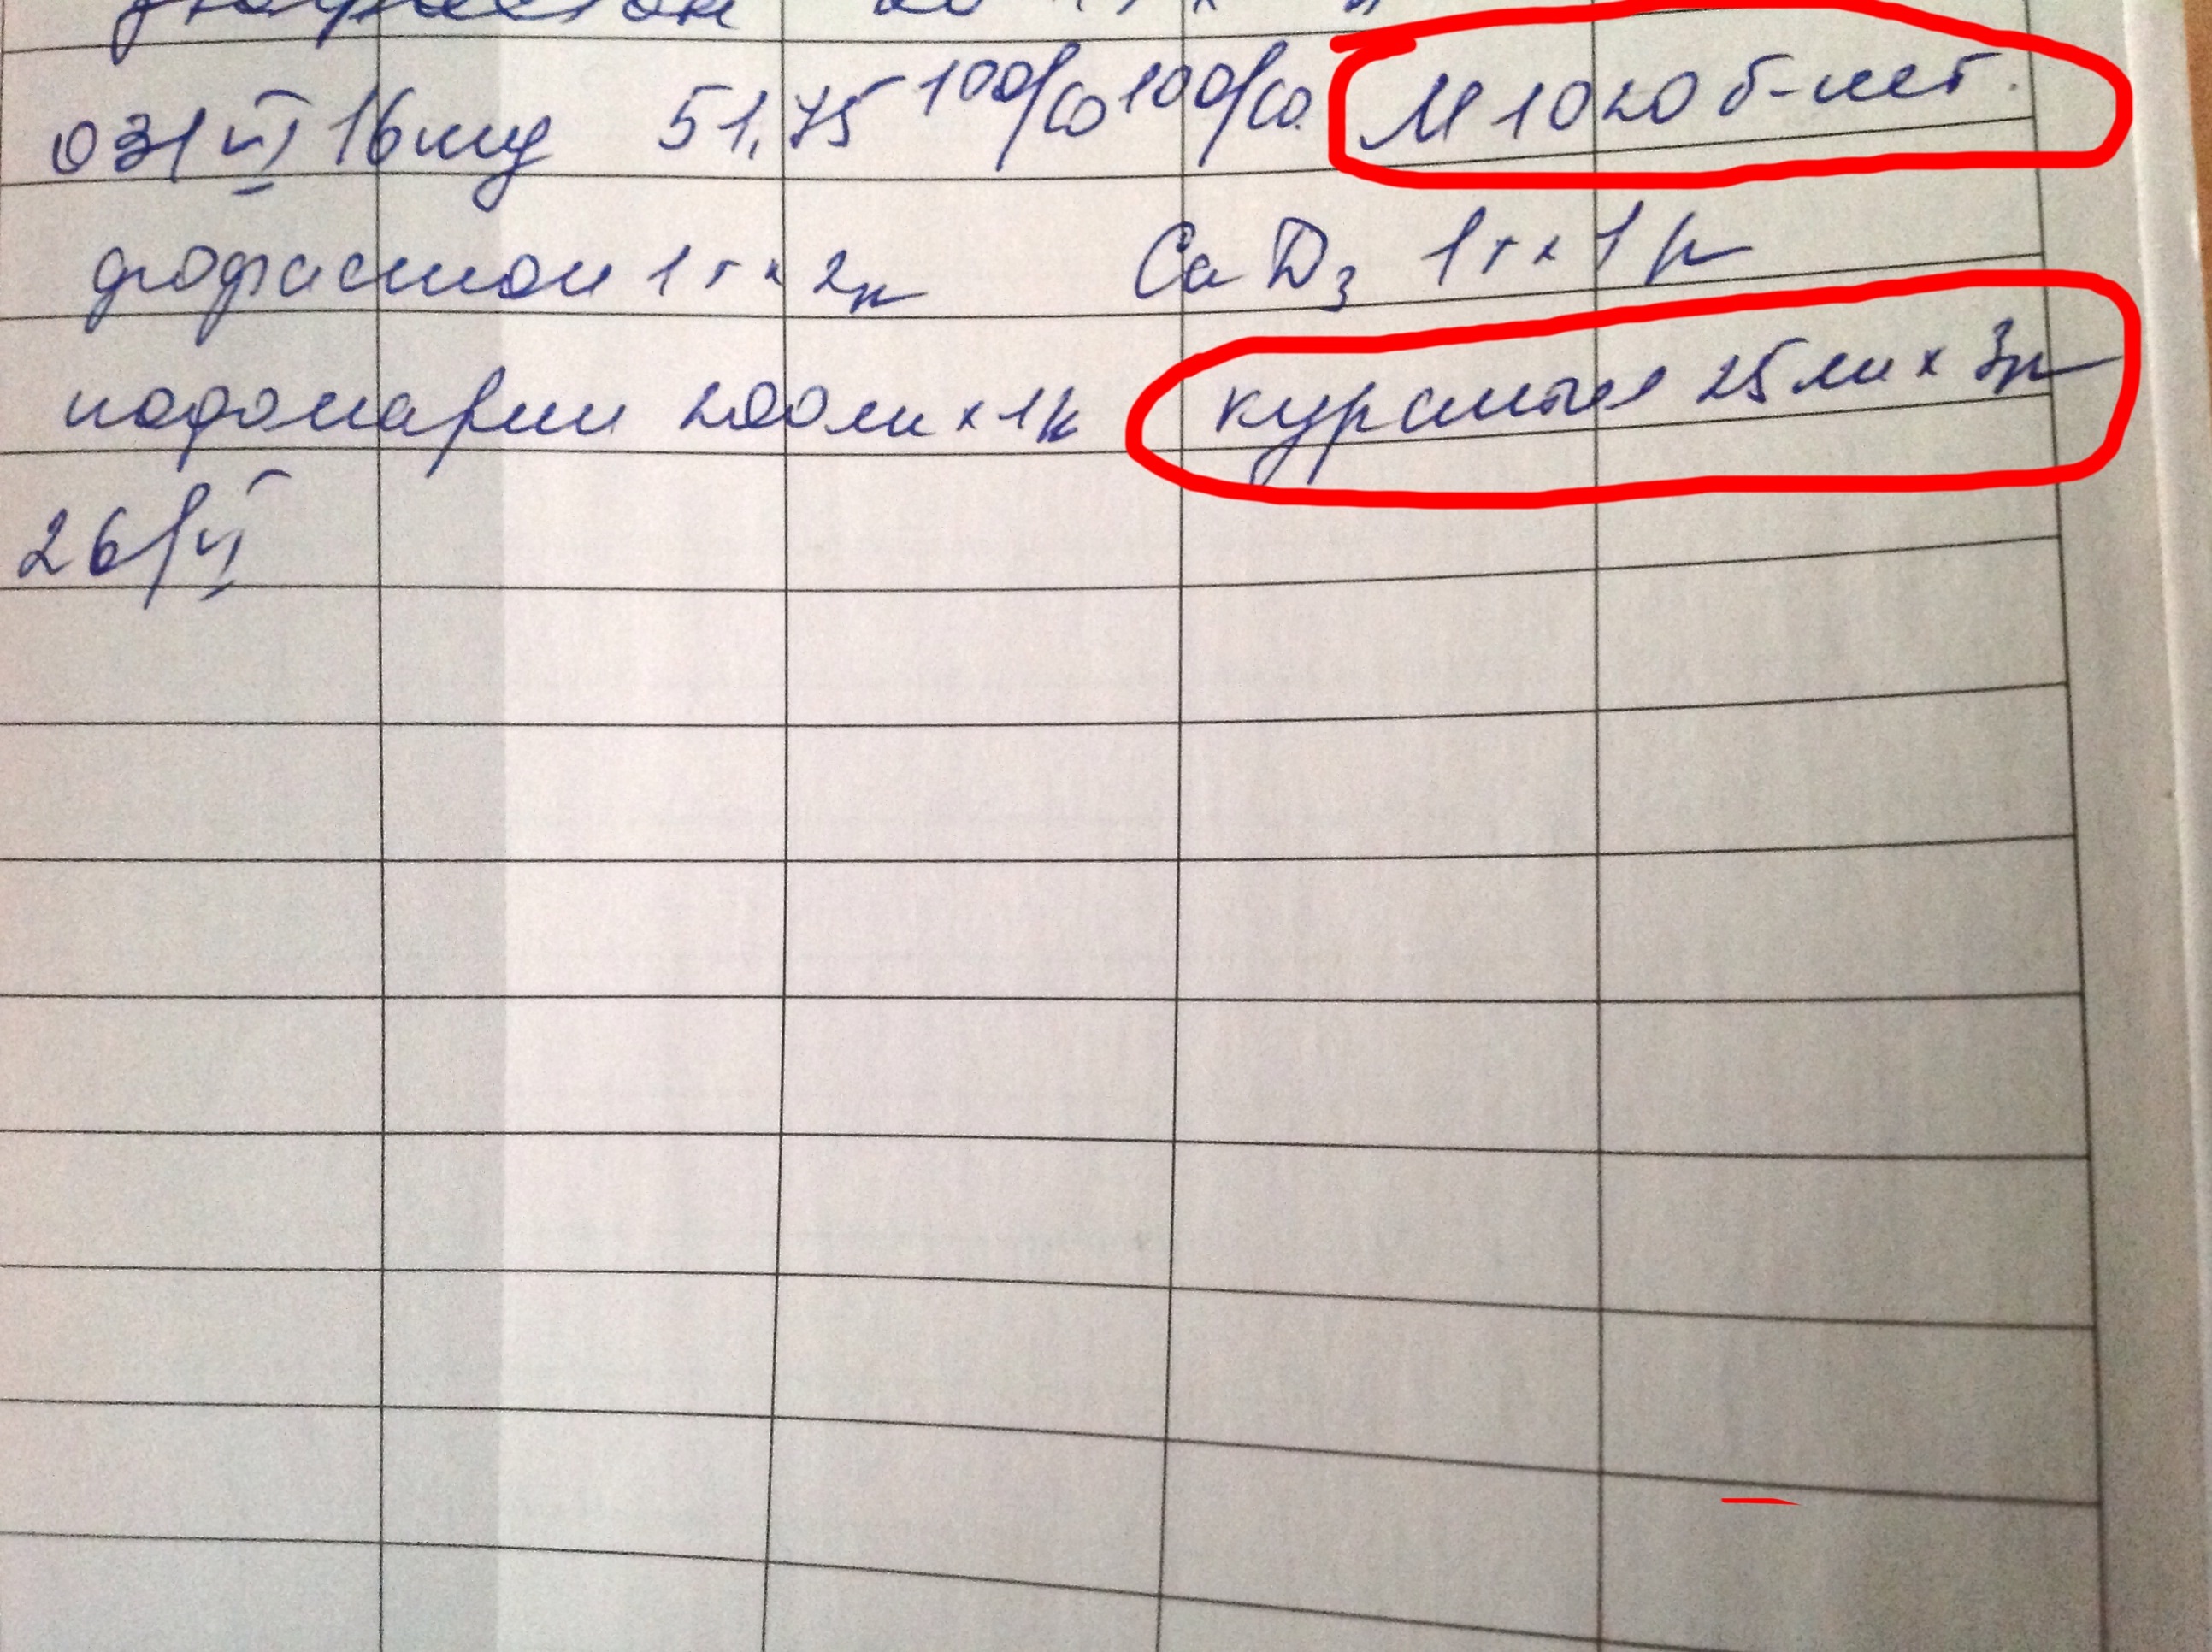 03/VI 16 нед 51,75 100/60 100/60. М 1020 б-лет.
дюфастон 1т х 2р Ca D3 1т х 1р
йодомарин 200 мк х 1р курантил 25 мг х 3р
26/VI